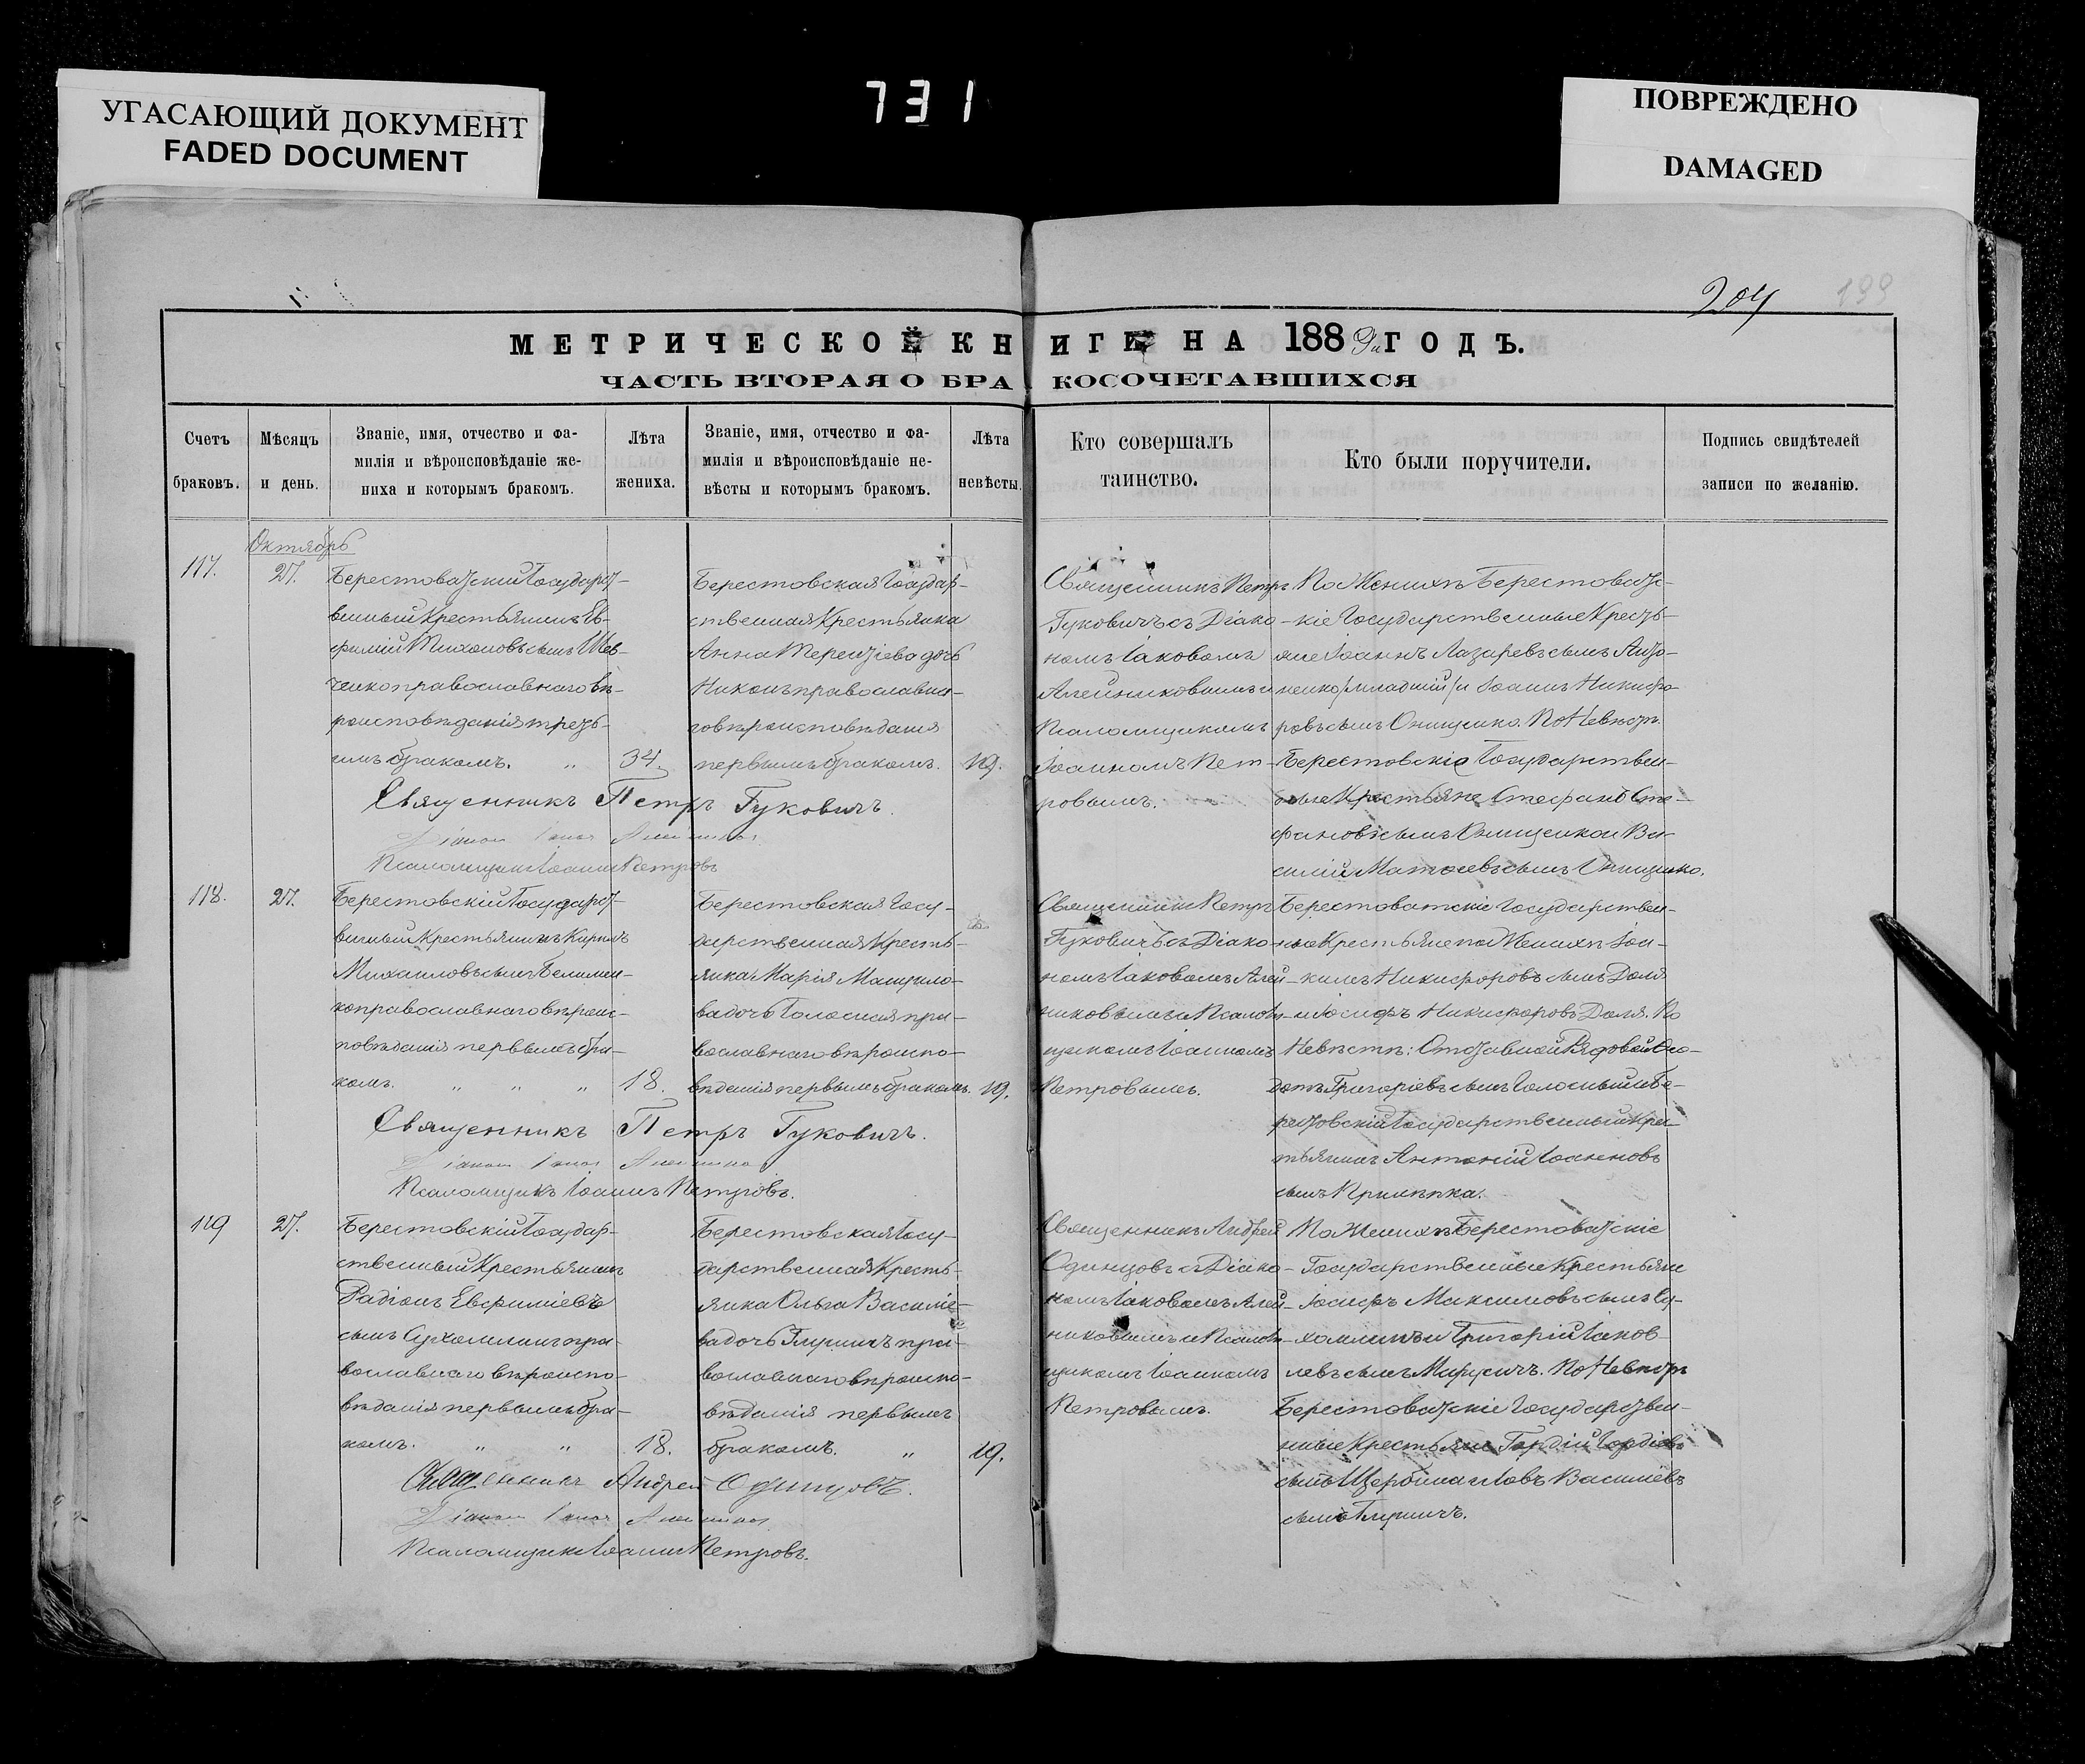 УГАСАЮЩИЙ ДОКУМЕНТ
FADED DOCUMENT
731
ПОВРЕЖДЕНО
DAMAGED
204
199
МЕТРИЧЕСКОЙ КНИГИ НА 1889й ГОДЪ.
ЧАСТЬ ВТОРАЯ О БРАКОСОЧЕТАВШИХСЯ
Счетъ
браковъ.
Мѣсяцъ
и день.
Званіе, имя, отчество и фа-
милія и вѣроисповѣданіе же-
ниха и которымъ бракомъ.
Лѣта
жениха.
Званіе, имя, отчество и фа-
милія и вѣроисповѣданіе не-
вѣсты и которымъ бракомъ.
Лѣта
невѣсты.
Кто совершалъ
таинство.
Кто были поручители.
Подпись свидѣтелей
записи по желанію.
Октябрь
117.
27.
Берестоватскій Государст-
венный Крестьянинъ Ев-
фимій Тихоновъ сынъ Шев-
ченко православнаго вѣ-
роисповѣданія треть-
имъ бракомъ. „
34.
Берестовская Государ-
ственная Крестьянка
Анна Терентіева дочь
Никонъ православна-
го вѣроисповѣданія
первымъ бракомъ.
19.
Священникъ Петръ
Гуковичъ съ Діако-
номъ Іаковомъ
Алейниковымъ и
Псаломщикомъ
Іоанномъ Пет-
ровымъ.
По Женихѣ Берестоватс-
кіе Государственные Кресть-
яне Іоаннъ Лазаревъ сынъ
(младшій) и Іоаннъ Никифо-
ровъ сынъ Онищенко. По Невѣстѣ
Берестовскіе Государствен-
ные Крестьяне Стефанъ Сте-
фановъ сынъ Онищенко и Ва-
силій Матѳеевъ сынъ Онищенко.
Священникъ Петръ Гуковичъ.
Діаконъ Іаковъ Алейниковъ
Псаломщикъ Іоаннъ Петровъ
118.
27.
Берестовскій Государст-
венный Крестьянинъ Кириллъ
Михаиловъ сынъ
ко православнаго вѣроис-
повѣданія первымъ бра-
комъ. „ „ „
18.
Берестовская Госу-
дарственная Кресть-
янка Марія
ва дочь Голосная пра-
вославнаго вѣроиспо-
вѣданія первымъ бракомъ.
19.
Священникъ Петръ
Гуковичъ съ Діако-
номъ Іаковомъ Алей-
никовымъ и Псалом-
щикомъ Іоанномъ
Петровымъ.
Берестоватскіе Государствен-
ные Крестьяне по Женихѣ Іоа-
кимъ Никифоровъ сынъ Доля
и Іосифъ Никифоровъ Доля. По
Невѣстѣ: Отставной Рядовой Ѳео-
дотъ Григоріевъ сынъ Голосный и Бе-
рестовскій Государственный Крес-
тьянинъ Антоній Іоанновъ
сынъ Прилипка.
Священникъ Петръ Гуковичъ.
Діаконъ Іаковъ Алейниковъ
Псаломщикъ Іоаннъ Петровъ.
119
27.
Берестовскій Государ-
ственный Крестьянинъ
Радіонъ Евфиміевъ
сынъ Сухомлинъ пра-
вославнаго вѣроиспо-
вѣданія первымъ бра-
комъ. „ „
18.
Берестовская Госу-
дарственная Кресть-
янка Ольга Василіе-
ва дочь Гиричъ пра-
вославнаго вѣроиспо-
вѣданія первымъ
бракомъ. „
19.
Священникъ Андрей
Одинцовъ съ Діако-
номъ Іаковомъ Алей-
никовымъ и Псалом-
щикомъ Іоанномъ
Петровымъ.
По Женихѣ Берестоватскіе
Государственные Крестьяне
Іосифъ Максимовъ сынъ Су-
хомлинъ и Григорій Іаков-
левъ сынъ По Невѣстѣ
Берестоватскіе Государствен-
ные Крестьяне Гордій Гордіевъ
сынъ Щербина и Іовъ Василіевъ
сынъ Гиричъ.
Священникъ Андрей Одинцовъ.
Діаконъ Іаковъ Алейниковъ
Псаломщикъ Іоаннъ Петровъ.